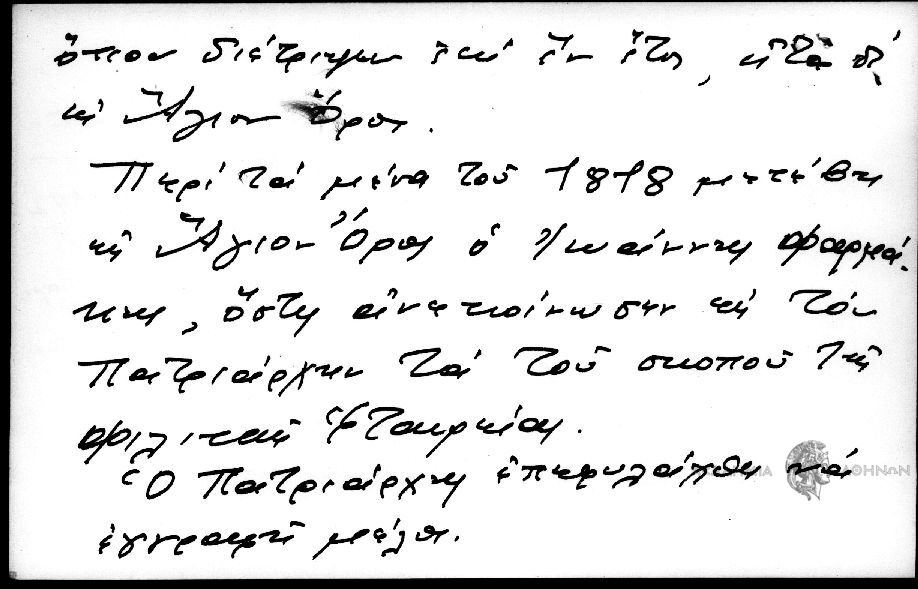 ὅπου διέτριψεν ἐπί ἕν ἔτος, εἶτα δέ
εἰς Ἅγιον Ὄρος.
Περί τά μέσα τοῦ 1818 μετέβη
εἰς Ἅγιον Ὄρος ὁ Ἰωάννης Φαρμά-
κης, ὅστις ἀνεκοίνωσεν εἰς τόν
Πατριάρχην τά τοῦ σκοποῦ τῆς
Φιλικῆς Ἑταιρείας.
Ὁ Πατριάρχης ἐπεφυλάχθη νά
ἐγγραφῆ μέλος.
ΑΘΗΝΩΝ